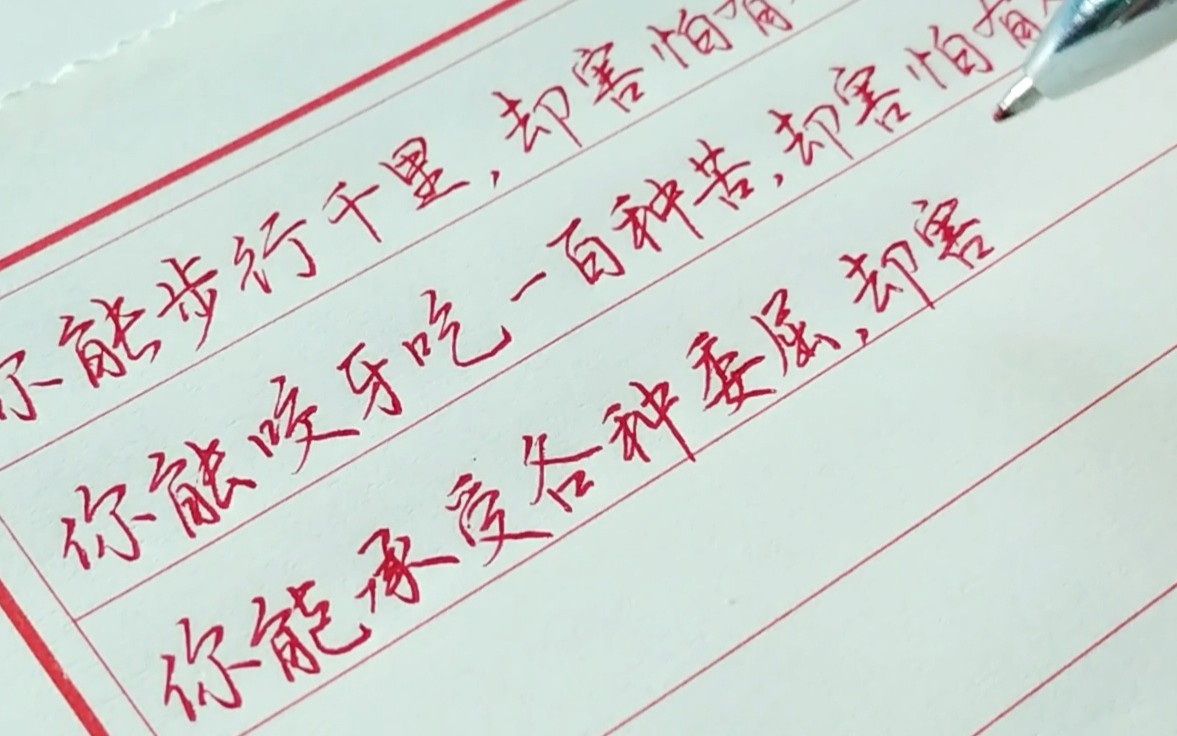 你能步行千里,却害怕有
你能咬牙吃一百种苦,却害怕有
你能承受各种委屈,却害